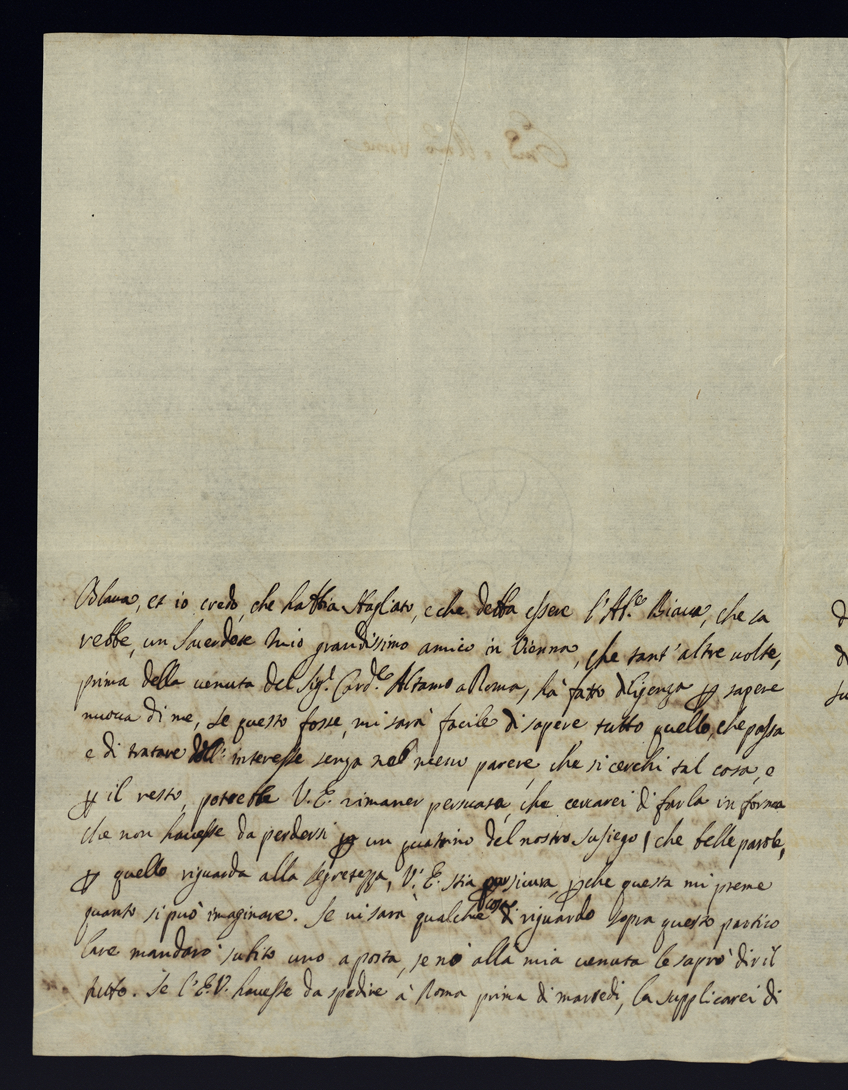 Blaua, et io credo, che habbia sbagliato, e che debba essere l'Ab.e Biaua, che sa
rebbe, un Sacerdote mio grandissimo amico in Vienna, che tant'altre uolte,
prima della uenuta del Sig.r Card.le Altamo a Roma, hà fatto diligenza ꝑ sapere
nuoua di me, se questo fosse, mi sarà facile di sapere tutto quello, che passa
e di tratare dell' interesse senza nel meno parere, che si cerchi tal cosa, e
ꝑ il resto, potrebbe V. E. rimaner persuasa, che cercarei di farla in forma
che non hauesse da perdersi ꝑ un quatrino del nostro susiego / che belle parole,
ꝑ quello riguarda alla segretezza, V. E. stia sicura, ꝑche questa mi preme
quanto si può imaginare. Se ui sarà qualche cosa di riguardo sopra questo partico
lare mandarò subito uno a posta, se nò alla mia uenuta le saprò dir il
tutto. Se l'E. V. hauesse da spedire à Roma prima di martedi, la supplicarei di